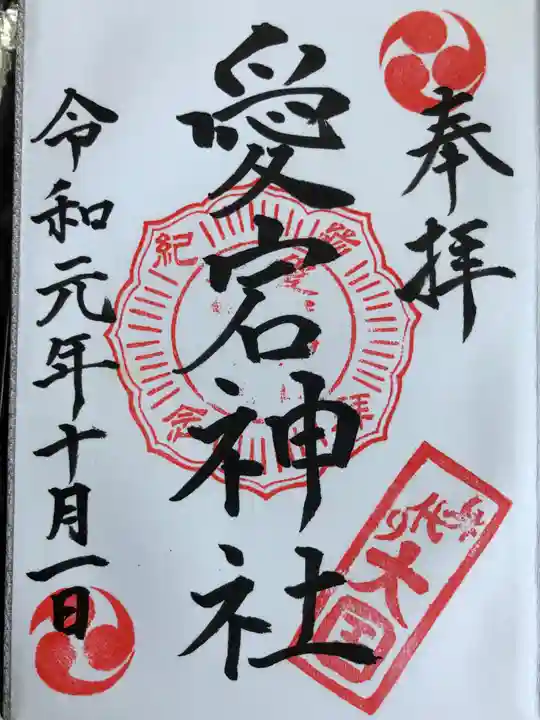 奉拝
愛宕神社
令和元年十月一日
紀
念
大